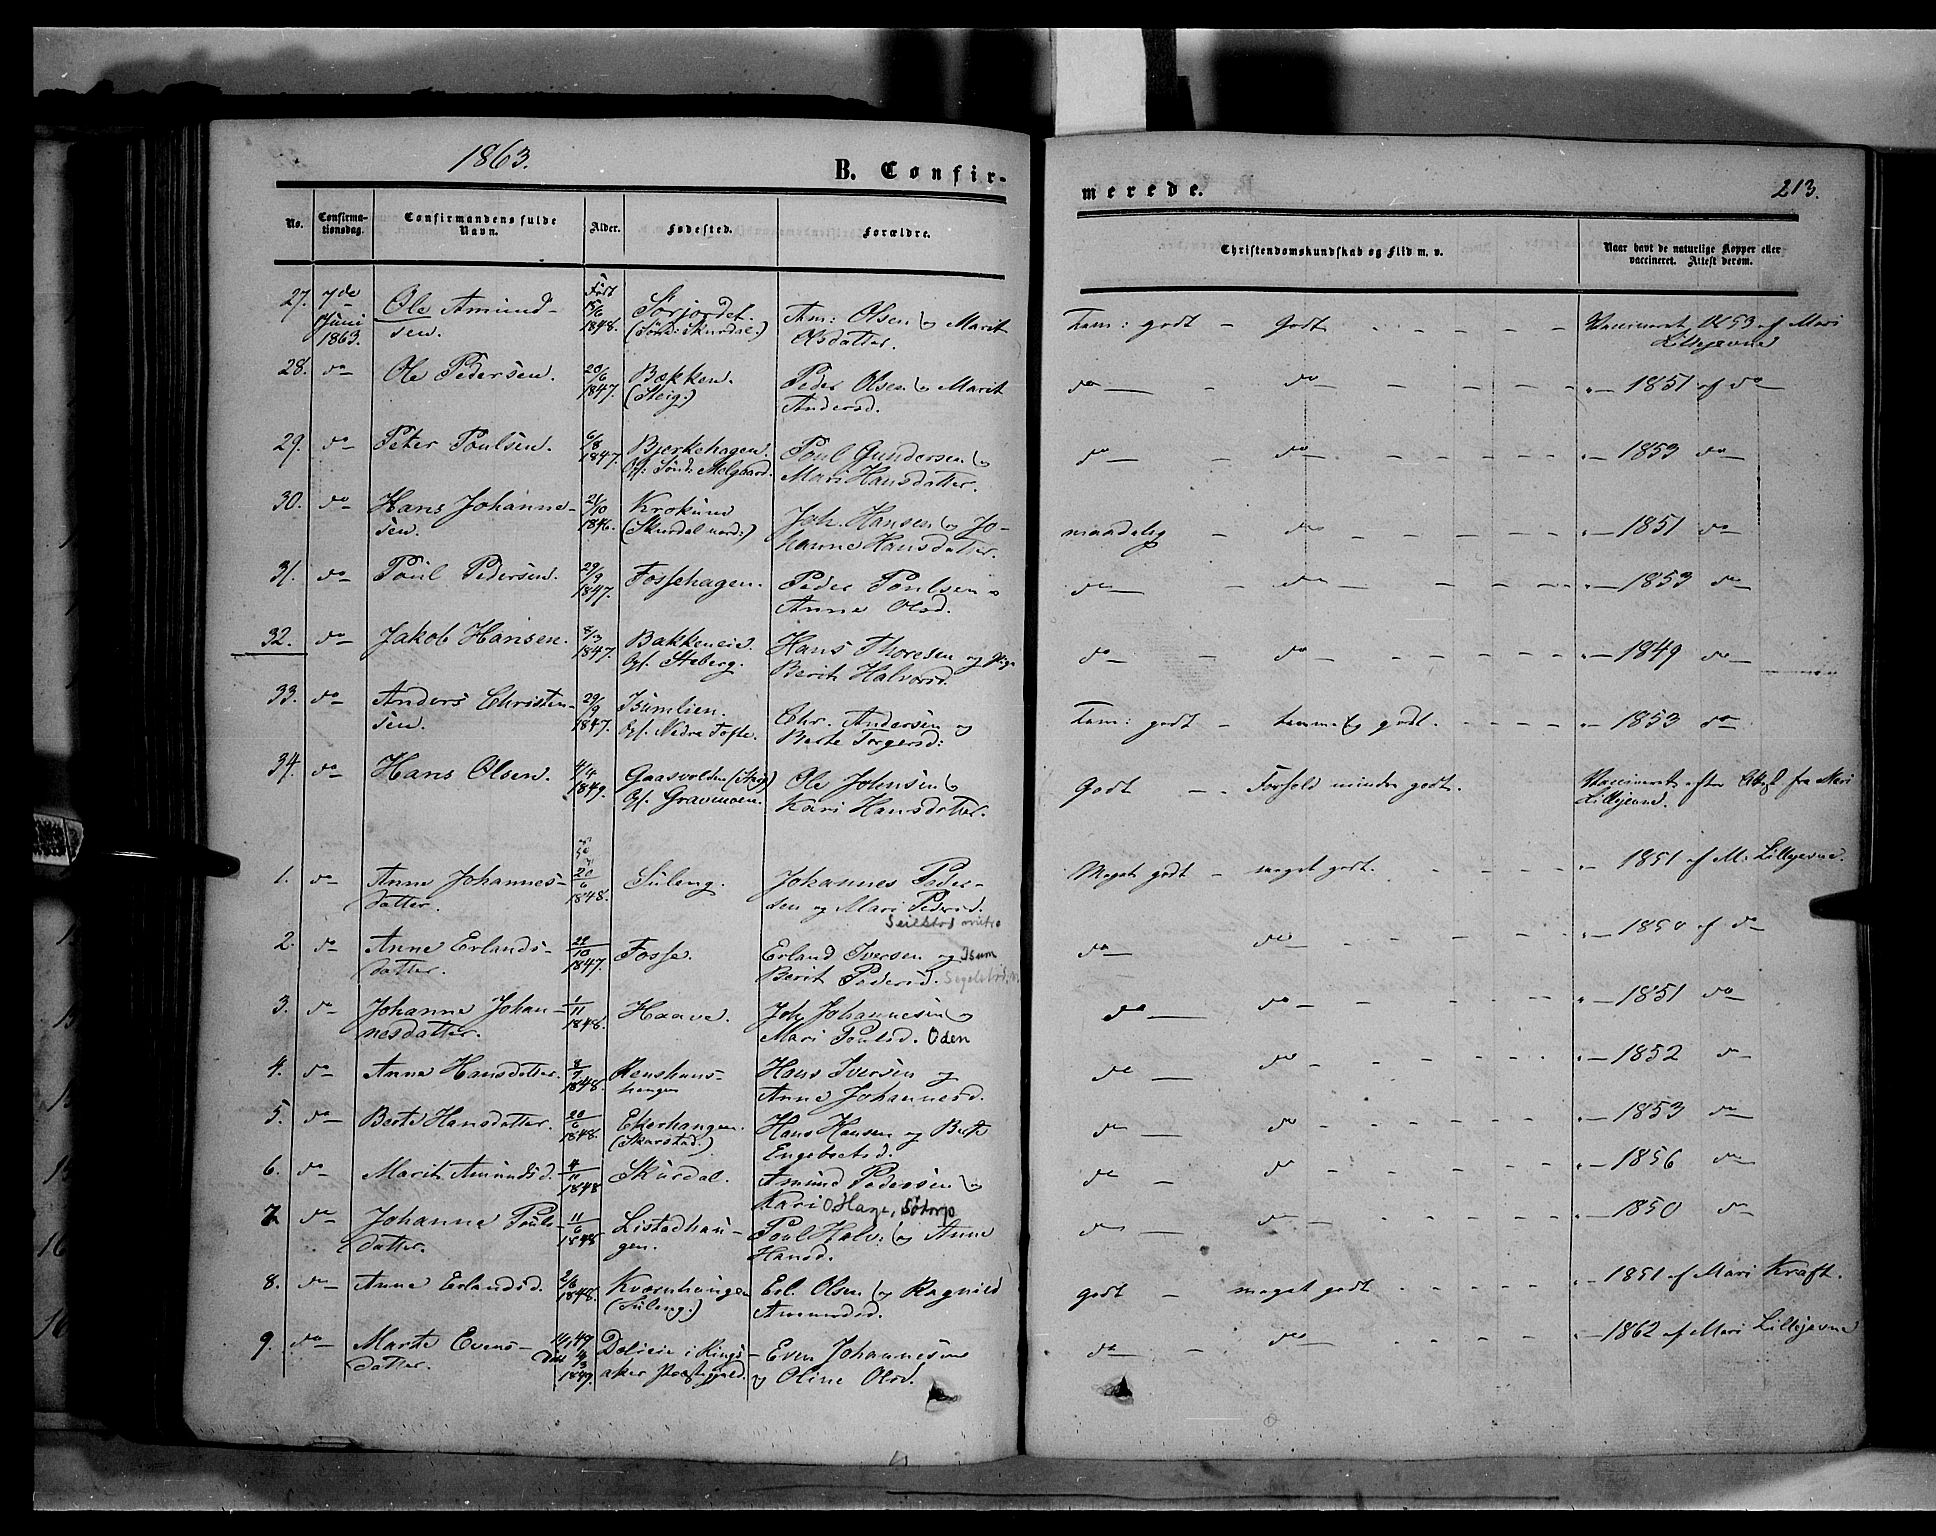 1863.
B. Confir-
merede.
213.
No. Confirma-tionsdag. Confirmandens fulde Navn. Alder. Fødested. Forældre. Christendomskundskab og Flid m. v. Naar havt de naturlige Kopper eller vaccineret. Attest derom.
27. 7de Juni 1863. Ole Amund- Født 15/6 1848. Sørjordet. Am: Olsen og Marit Tem: godt — Godt Vaccineret 1853 af Mari
sen. Olsdatter. Lillejevne
28. do Ole Pedersen. 20/6 1847. Bækken. Peder Olsen og Marit do — do — 1851 af do
(Steig.) Andersd.
29. do Peter Poulsen. 6/8 1847. Bjerkehagen. Poul Gundersen og do — do — 1853 do
Mari Hansdatter.
30. do Hans Johanne- 21/10 1846. Krokund Joh. Hansen og Jo- maadelig — do — 1851 do
sen. (Skurdal nord:) hanne Hansdatter.
31. do Poul Pedersen. 29/9 1847. Fossehagen. Peder Poulsen o do — do — 1853 do
Anne Olsd.
32. do Jakob Hansen. 8/3 1847. Bakkeneie. Hans Thoresen og Pige do — do — 1849 do
Steberg. Berit Halvorsd.
33. do Anders Christen- 29/9 1847. Isumlien. Chr. Andersen og Tem: godt — temmelig godt. — 1853 do
sen. Nedre Tofte. Berte Torgersd:
34. do Hans Olsen. 4/4 1849. Gaasvolden (Steig) Ole Johnsen og Godt — Forhold mindre godt. Vaccineret efter Attest fra Mari
Gravenoen. Kari Hansdatter. Lillejevne.
1. do Anne Johannes- 20/6 1848. Suleng. Johannes Peder- Meget godt — meget godt. — 1851 af M: Lillejevne.
datter. sen og Mari Pedersd.
Seielstad
2. do Anne Erlands- 22/10 1847. Fosse. Erland Iversen og Isum do — do — 1850 af do
datter. Berit Pedersd.
3. do Johanne Johan- 1/11 1848. Haave. Joh Johannesen og do — do — 1851 do
nesdatter. Mari Poulsd. Oden
4. do Anne Hansdatter. 8/7 1848. Renshus- Hans Iversen og do — do — 1852 do
haugen Anne Johannesd.
5. do Berte Hansdatter. 20/6 1848. Ekerhaugen. Hans Hansen og Berte do — do — 1853 do
(Skarstad.) Engebretsd.
6. do Marit Amundsd. 4/11 1848 Skurdal. Amund Pedersen og do — do — 1856 do
Kari O Hage, Sødorp
7. do Johanne Pouls- 11/6 1848 Listadhau- Poul Halv: og Anne do — do — 1850 do
datter. gen. Hansd.
8. do Anne Erlandsd. 2/6 1848. Kværnhaugen Erl. Olsen og Ragnild godt — meget godt — 1851 af Mari Kraft.
(Suleng.) Amundsd.
9. do Marte Evens- 1849. Dælieie i Rings- Even Johannesen do — do — 1862 af Mari Lillejevne
datter. aker Præstegjeld. og Oline Olsd.